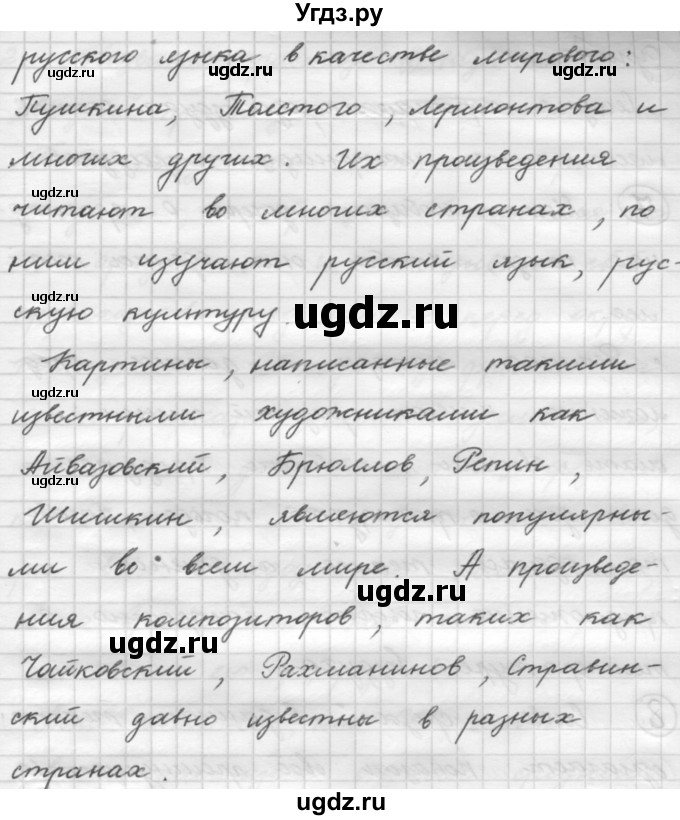 Угдз.ру
русского языка в качестве мирового:
ugdz.ru ugdz.ru ugdz.ru
Пушкина, Толстого, Лермонтова и
многих других. Их произведения
ugdz.ru
читают во многих странах, по
ним изучают русский язык, рус-
скую культуру.
ugdz.ru
Картины, написанные такими
ugdz.ru
известными художниками как
Айвазовский, Брюллов, Репин,
Шишкин, являются популярны-
ми во всем мире. А произведе-
ugdz.ru
ния композиторов, таких как
ugdz.ru
Чайковский, Рахманинов, Стравин-
ский давно известны в разных
странах.
ugdz.ru